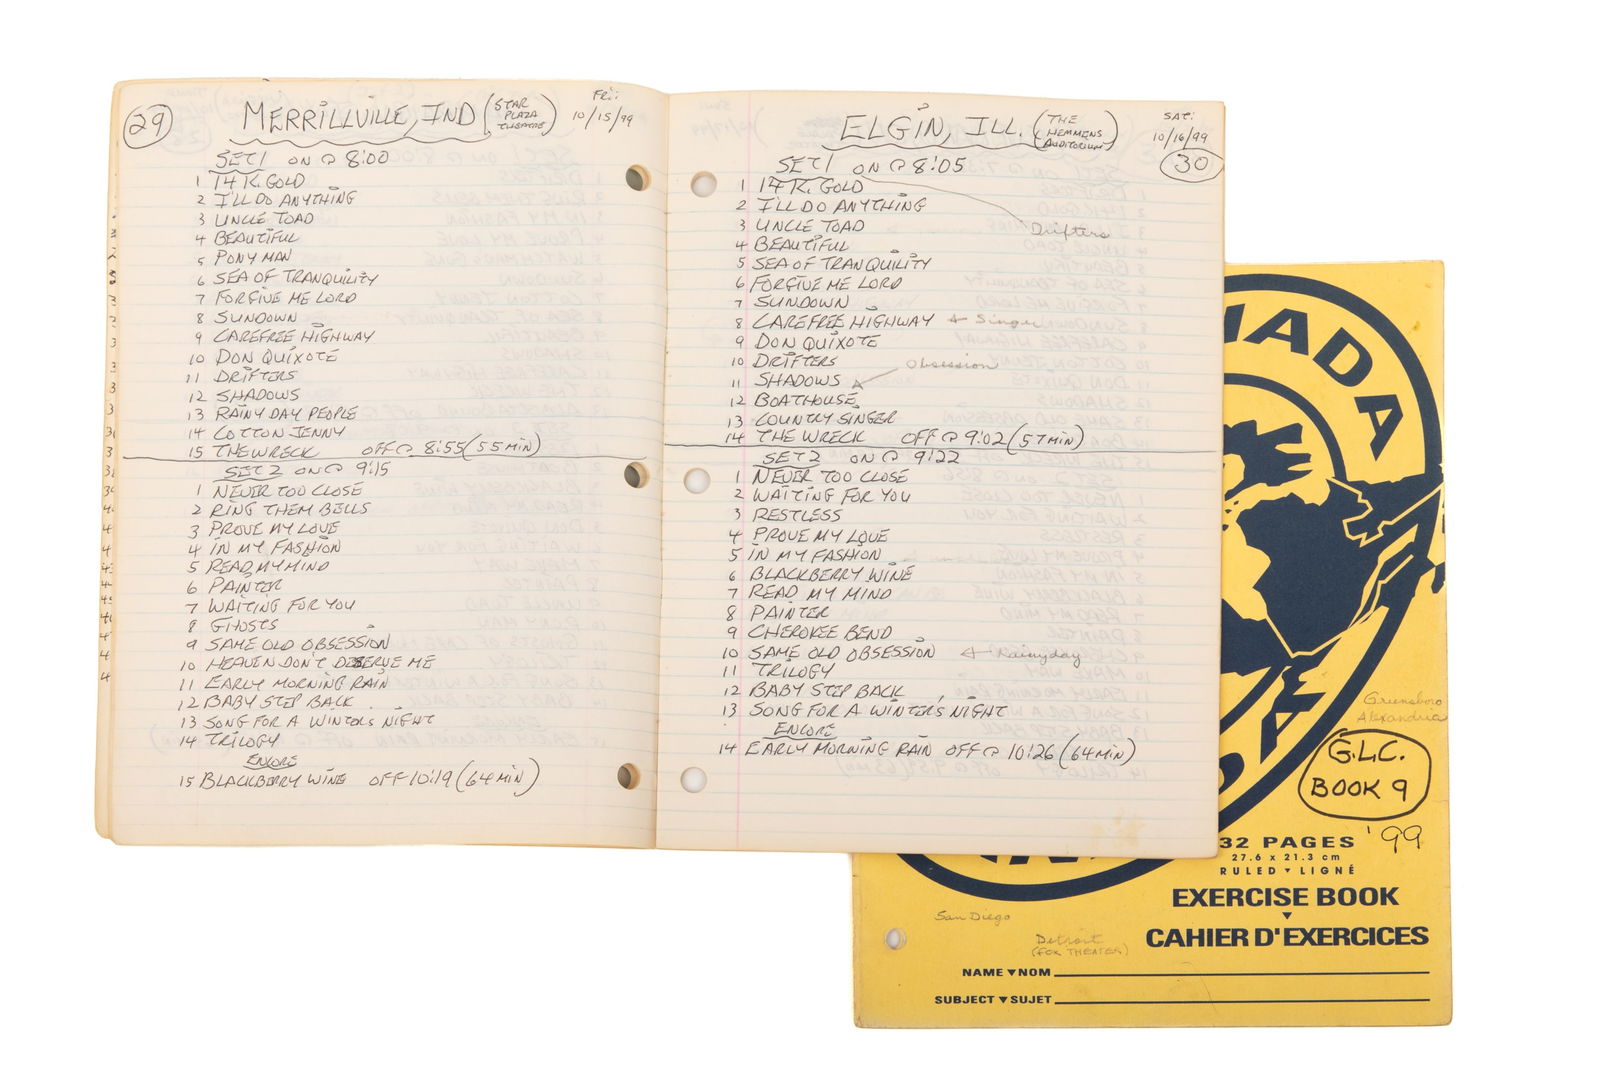 29
MERRILLVILLE, IND (STAR PLAZA THEATRE)
FRI: 10/15/99
SET 1 ON @ 8:00
1 14 K. GOLD
2 I'LL DO ANYTHING
3 UNCLE TOAD
4 BEAUTIFUL
5 PONY MAN
6 SEA OF TRANQUILITY
7 FORGIVE ME LORD
8 SUNDOWN
9 CAREFREE HIGHWAY
10 DON QUIXOTE
11 DRIFTERS
12 SHADOWS
13 RAINY DAY PEOPLE
14 COTTON JENNY
15 THE WRECK OFF @ 8:55 (55 MIN)
SET 2 ON @ 9:15
1 NEVER TOO CLOSE
2 RING THEM BELLS
3 PROVE MY LOVE
4 IN MY FASHION
5 READ MY MIND
6 PAINTER
7 WAITING FOR YOU
8 GHOSTS
9 SAME OLD OBSESSION
10 HEAVEN DON'T DESERVE ME
11 EARLY MORNING RAIN
12 BABY STEP BACK
13 SONG FOR A WINTERS NIGHT
14 TRILOGY
ENCORE
15 BLACKBERRY WINE OFF 10:19 (64 MIN)
ELGIN, ILL. (THE HEMMENS AUDITORIUM)
SAT: 10/16/99
30
SET 1 ON @ 8:05
1 14 K. GOLD
2 I'LL DO ANYTHING
3 UNCLE TOAD
Drifters
4 BEAUTIFUL
5 SEA OF TRANQUILITY
6 FORGIVE ME LORD
7 SUNDOWN
8 CAREFREE HIGHWAY ← Singer
9 DON QUIXOTE
10 DRIFTERS
Obsession
11 SHADOWS
12 BOATHOUSE
13 COUNTRY SINGER
14 THE WRECK OFF @ 9:02 (57 MIN)
SET 2 ON @ 9:22
1 NEVER TOO CLOSE
2 WAITING FOR YOU
3 RESTLESS
4 PROVE MY LOVE
5 IN MY FASHION
6 BLACKBERRY WINE
7 READ MY MIND
8 PAINTER
9 CHEROKEE BEND
10 SAME OLD OBSESSION ← Rainyday
11 TRILOGY
12 BABY STEP BACK
13 SONG FOR A WINTER'S NIGHT
ENCORE
14 EARLY MORNING RAIN OFF @ 10:26 (64 MIN)
NADA
Greensboro
Alexandria
G.L.C.
BOOK 9
'99
32 PAGES
27.6 x 21.3 cm
RULED ▾ LIGNÉ
EXERCISE BOOK
▾
CAHIER D'EXERCICES
San Diego
Detroit
(FOX THEATER)
NAME ▾ NOM
SUBJECT ▾ SUJET